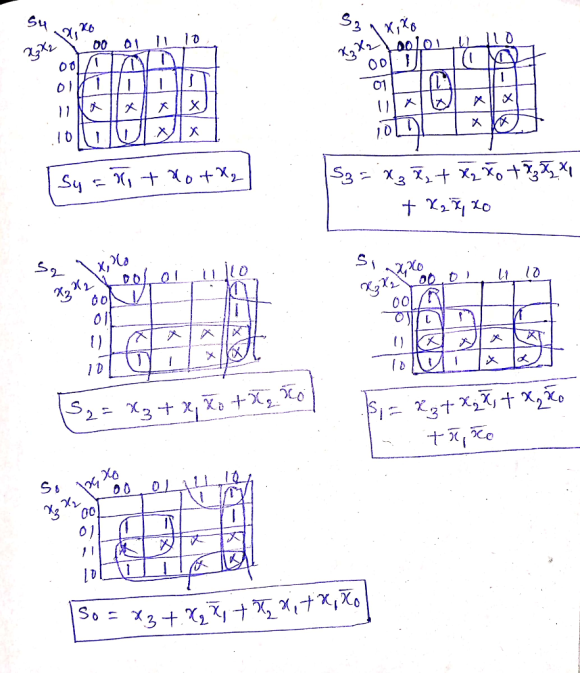 S4 x1x0
x3x2 00 01 11 10
00 1 1 1
01 1 1 1 1
11 x x x x
10 1 1 x x
S4 = x̄1 + x0 + x2
S3 x1x0
x3x2 00 01 11 10
00 1 1 1
01 1 1
11 x x x x
10 1 x x
S3 = x3 x̄2 + x̄2 x̄0 + x̄3 x̄2 x1
+ x2 x̄1 x0
S2 x1x0
x3x2 00 01 11 10
00 1 1
01 1
11 x x x x
10 1 1 x x
S2 = x3 + x1 x̄0 + x̄2 x̄0
S1 x1x0
x3x2 00 01 11 10
00 1
01 1 1 1
11 x x x x
10 1 1 x x
S1 = x3 + x2 x̄1 + x2 x̄0
+ x̄1 x̄0
S0 x1x0
x3x2 00 01 11 10
00 1 1
01 1 1 1
11 x x x x
10 1 1 x x
S0 = x3 + x2 x̄1 + x̄2 x1 + x1 x̄0